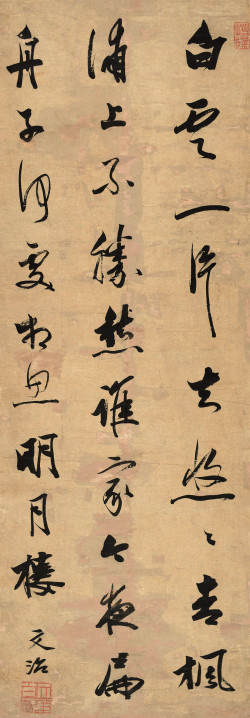 白雲一片去悠々青楓
浦上不勝愁誰家今夜扁
舟子何處相思明月樓
文治